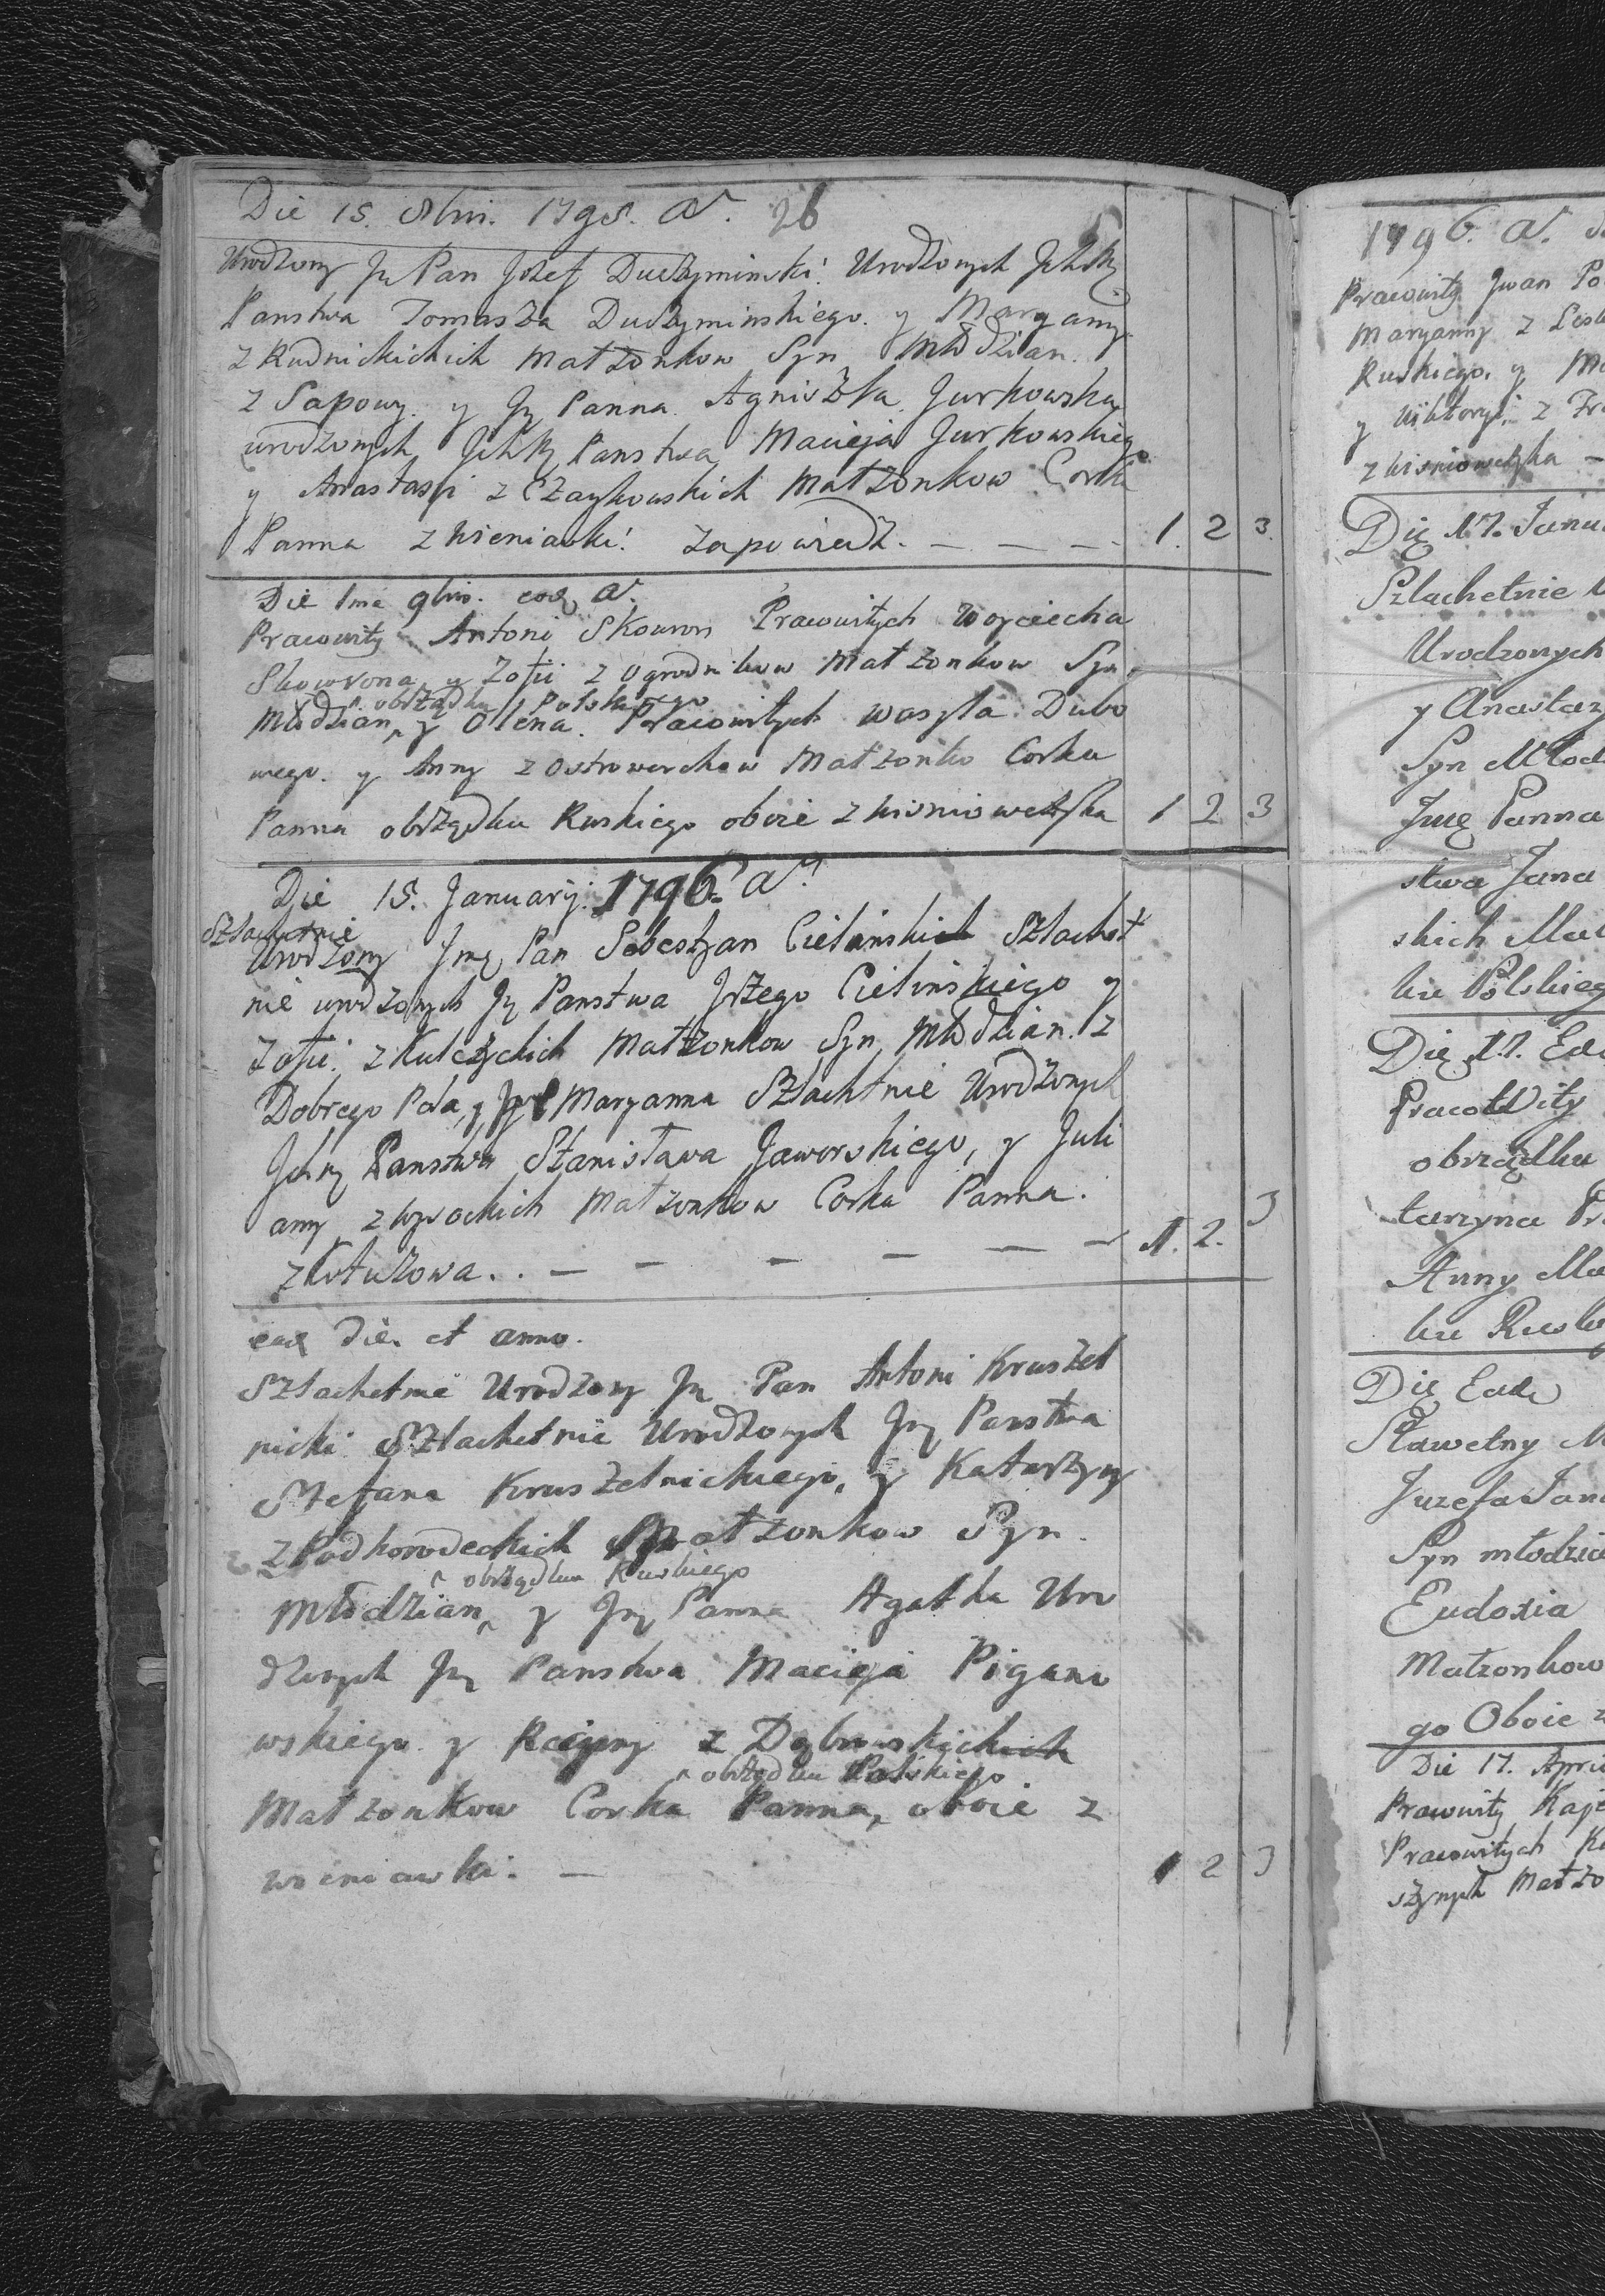 Die 15. 8bri. 1795. A. 26
Urodzony Jm Pan Jozef Duczyminski. Urodzonych Ichmę
Panstwa Tomasza Duczyminskiego. y Maryanny
z Rudnickichich Matzonkow Syn Młodzian.
z Sapowy. y Jm Panna Agniszka Jurkowska
urodzonych Ichmę Panstwa Macieja Jurkowskieg
y Anastasyi z Czaykowskich Matzonkow Corka
Panna z Wieniawki. zapowiedz. — — — 1. 2 3.
Die 1ma 9bris. eod A.
Pracowity Antoni Skowron Pracowitych Woyciecha
Skowrona y Zofii z Ogrodnikow Matzonkow Syn
obrządku Polskiego
Młodzian y Olena. Pracowitych Wasyla Dubo
wego. y Anny z Ostrowerchow Matzonko Corka
Panna obrządku Ruskiego oboie z Wisniowczyka 1 2 3
Die 15. Januarij. 1796. A.
Szlachetnie
Urodzony Jmę Pan Sebestyan Cielinskich Szlachet
nie urodzonych Jm Panstwa Jrzego Cielinskiego y
Zofii. z Kulczyckich Matzonkow Syn Młodzian. z
Dobrego Pola, y Maryanna Szlachtnie Urodzonych
Ichmę Panstwa Stanisława Jaworskiego, y Juli
anny z Wysockich Matzonkow Corka Panna.
z Kotuzowa. . — — — — — — 1. 2. 3
ead die. et anno.
Szlachetnie Urodzony Jm Pan Antoni Kruszel
nicki Szlachetnie Urodzonych Jm Panstwa
Stefana Kruszelnickiego, y Katarzyny
z Podhorodeckich Matzonkow Syn.
obrządku Ruskiego
Młodzian y Jm Panna Agatka Uro
dzonych Jm Panstwa Macieja Pigano
wskiego y Reginy z Dąbrowskichich
obrządku Polskiego
Matzonkow Corka Panna, oboie z
Wieniawki. — 1 2 3
1796. A.
Pracowity Jwan Po
Maryanny z Lesk
Ruskiego. y Ma
y Wiktoryi. z Fra
z Wisniowczyka —
Die 17. Janu
Szlachetnie U
Urodzonych
y Anastazy
Syn Młod
Jmę Panna
stwa Jana
skich Mał
ku Polskieg
Die 17. Ead
Pracowity
obrządku
tarzyna Pr
Anny Ma
ku Rusk
Die Eade
Sławetny M
Juzefa Jan
Syn młodzia
Eudoxia
Matzonkow
go Oboie z
Die 17. Apri
Pracowity Kaje
Pracowitych Ka
szynych Matzo